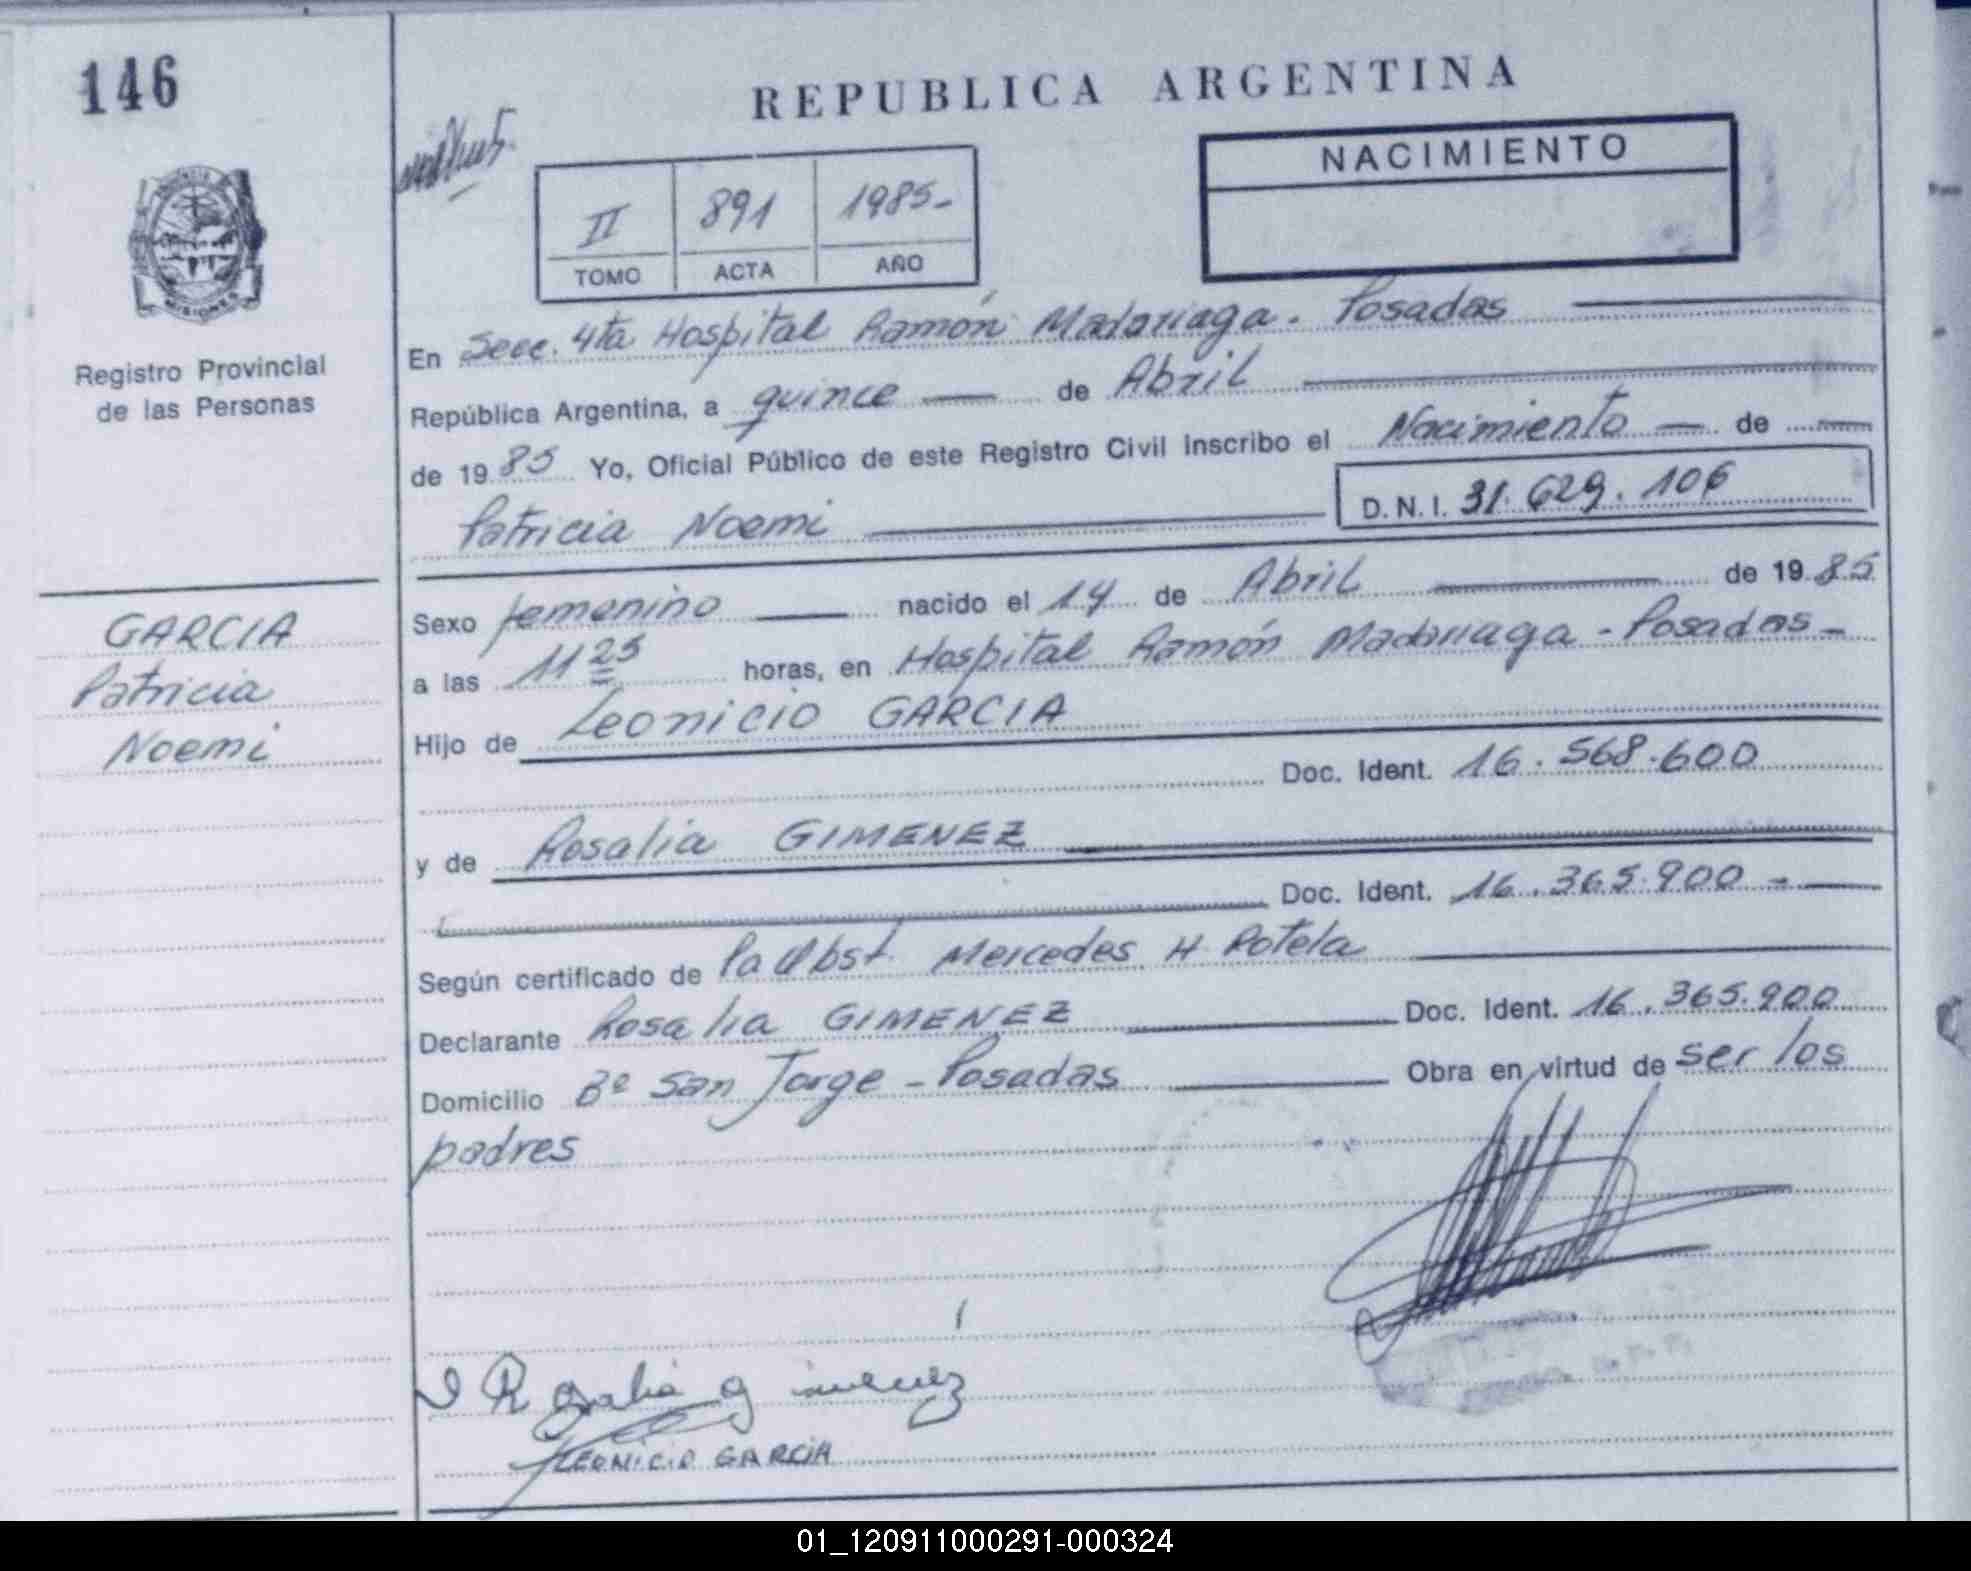 146
REPUBLICA ARGENTINA
NACIMIENTO
II 891 1985-
TOMO ACTA AÑO
MISIONES
Registro Provincial
de las Personas
En Secc. 4ta Hospital Ramón Madariaga - Posadas
República Argentina, a quince de Abril
de 1985 Yo, Oficial Público de este Registro Civil inscribo el Nacimiento de
Patricia Noemi D.N.I. 31.629.106
GARCIA
Patricia
Noemi
Sexo femenino nacido el 14 de Abril de 1985
a las 11 25 horas, en Hospital Ramón Madariaga - Posadas -
Hijo de Leonicio GARCIA
Doc. Ident. 16.568.600
y de Rosalia GIMENEZ
Doc. Ident. 16.365.900 -
Según certificado de Pa Obst. Mercedes H Potela
Declarante Rosalia GIMENEZ Doc. Ident. 16.365.900
Domicilio Bº San Jorge - Posadas Obra en virtud de ser los
padres
Rosalia gimenez
LEONICIO GARCIA
01_120911000291-000324